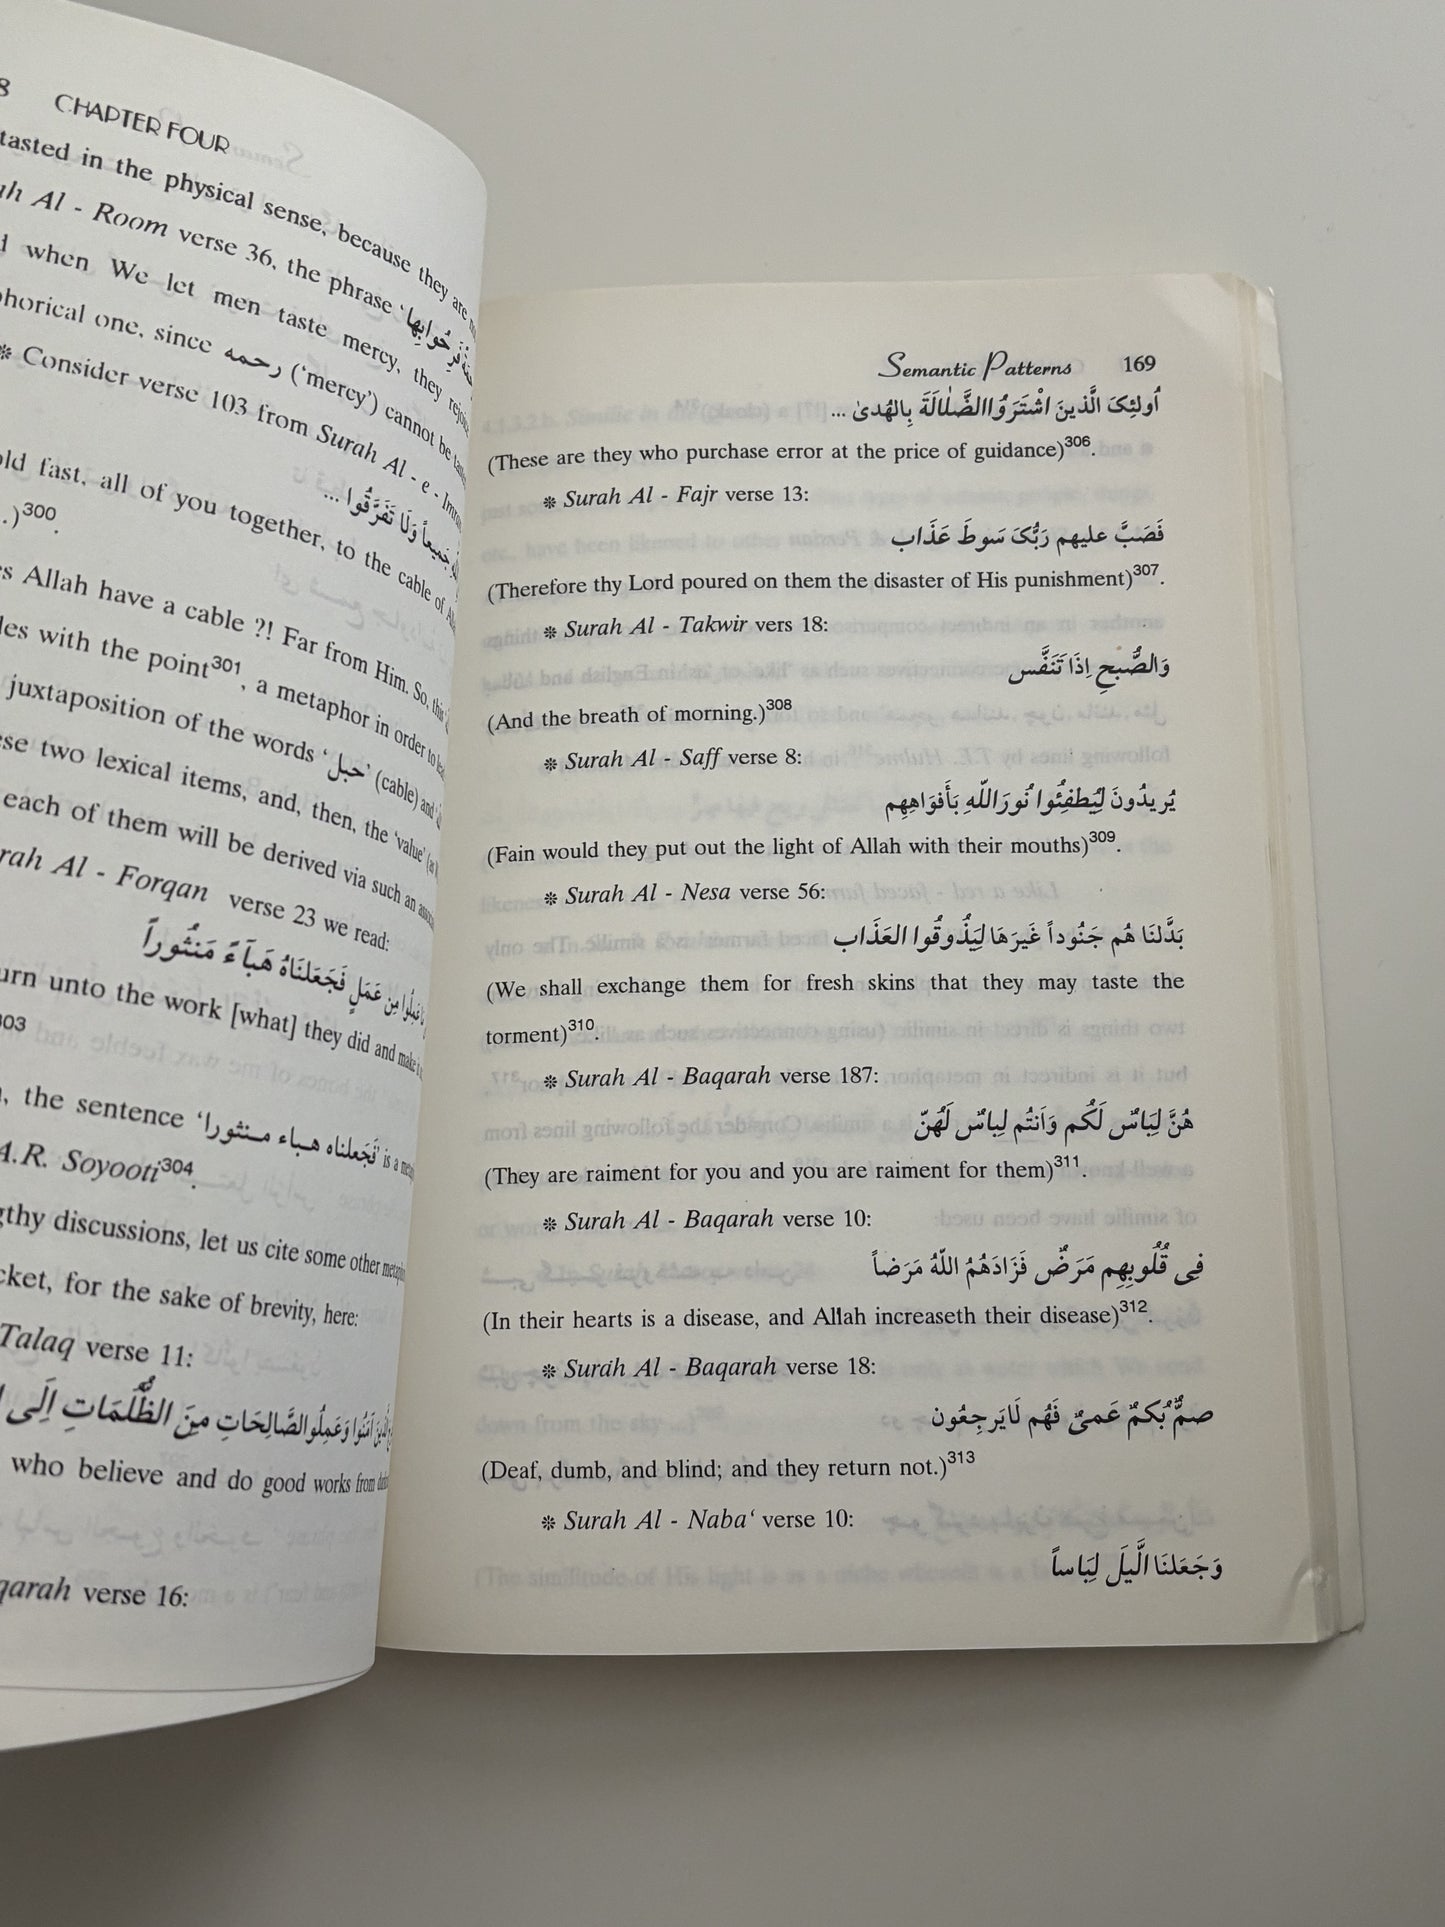 CHAPTER FOUR
tasted in the physical sense, because they are
Al - Room verse 36, the phrase ‘
when We let men taste mercy, they
one, since رحمه (‘mercy’) cannot be
❊ Consider verse 103 from Surah Al - e -
جَميعاً وَلَا تَفَرَّقُوا ...
fast, all of you together, to the cable of
.)300.
Allah have a cable ?! Far from Him. So, this
with the point301, a metaphor in order to
juxtaposition of the words ‘حبل’ (cable) and
two lexical items, and, then, the ‘value’
each of them will be derived via such an
Al - Forqan verse 23 we read:
مِن عَمَلٍ فَجَعَلنَاهُ هَبآءً مَنثُوراً
unto the work [what] they did and make
303
, the sentence ‘فَجَعلناه هباء منثورا’ is a
A.R. Soyooti304.
discussions, let us cite some other
for the sake of brevity, here:
Talaq verse 11:
آمَنُوا وَعَمِلُوالصَّالِحَاتِ مِنَ الظُّلُمَاتِ اِلَى
who believe and do good works from
verse 16:
Semantic Patterns 169
اُولئِکَ الَّذينَ اشْتَرَوُاالضَّلالَةَ بِالهُدىٰ ...
(These are they who purchase error at the price of guidance)306.
❊ Surah Al - Fajr verse 13:
فَصَبَّ عليهم رَبُّکَ سَوطَ عَذَاب
(Therefore thy Lord poured on them the disaster of His punishment)307.
❊ Surah Al - Takwir vers 18:
وَالصُّبحِ اِذَا تَنَفَّس
(And the breath of morning.)308
❊ Surah Al - Saff verse 8:
يُريدُونَ لِيُطفِئُوا نُورَاللّهِ بَأَفوَاهِهِم
(Fain would they put out the light of Allah with their mouths)309.
❊ Surah Al - Nesa verse 56:
بَدَّلنَا هُم جَنُوداً غَيرَهَا لِيَذُوقُوا العَذَاب
(We shall exchange them for fresh skins that they may taste the
torment)310.
❊ Surah Al - Baqarah verse 187:
هُنَّ لِبَاسٌ لَكُم وَاَنتُم لِباسٌ لَهُنّ
(They are raiment for you and you are raiment for them)311.
❊ Surah Al - Baqarah verse 10:
فِى قُلُوبِهِم مَرَضٌ فَزَادَهُمُ اللّهُ مَرَضاً
(In their hearts is a disease, and Allah increaseth their disease)312.
❊ Surah Al - Baqarah verse 18:
صمٌّ بُكمٌ عَمىٌ فَهُم لَايَرجِعُون
(Deaf, dumb, and blind; and they return not.)313
❊ Surah Al - Naba‘ verse 10:
وَجَعَلنَا الَّيلَ لِبَاساً